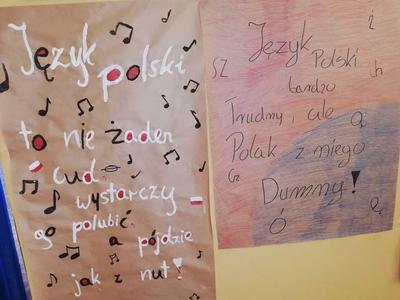 Język
polski
to nie żaden
cud.
wystarczy
go polubić,
a pójdzie
jak z nut!
ż
Język
SZ
Polski
ch
bardzo
Trudny, ale
ą
Polak z niego
Cz
Dumny!
Ó
ę